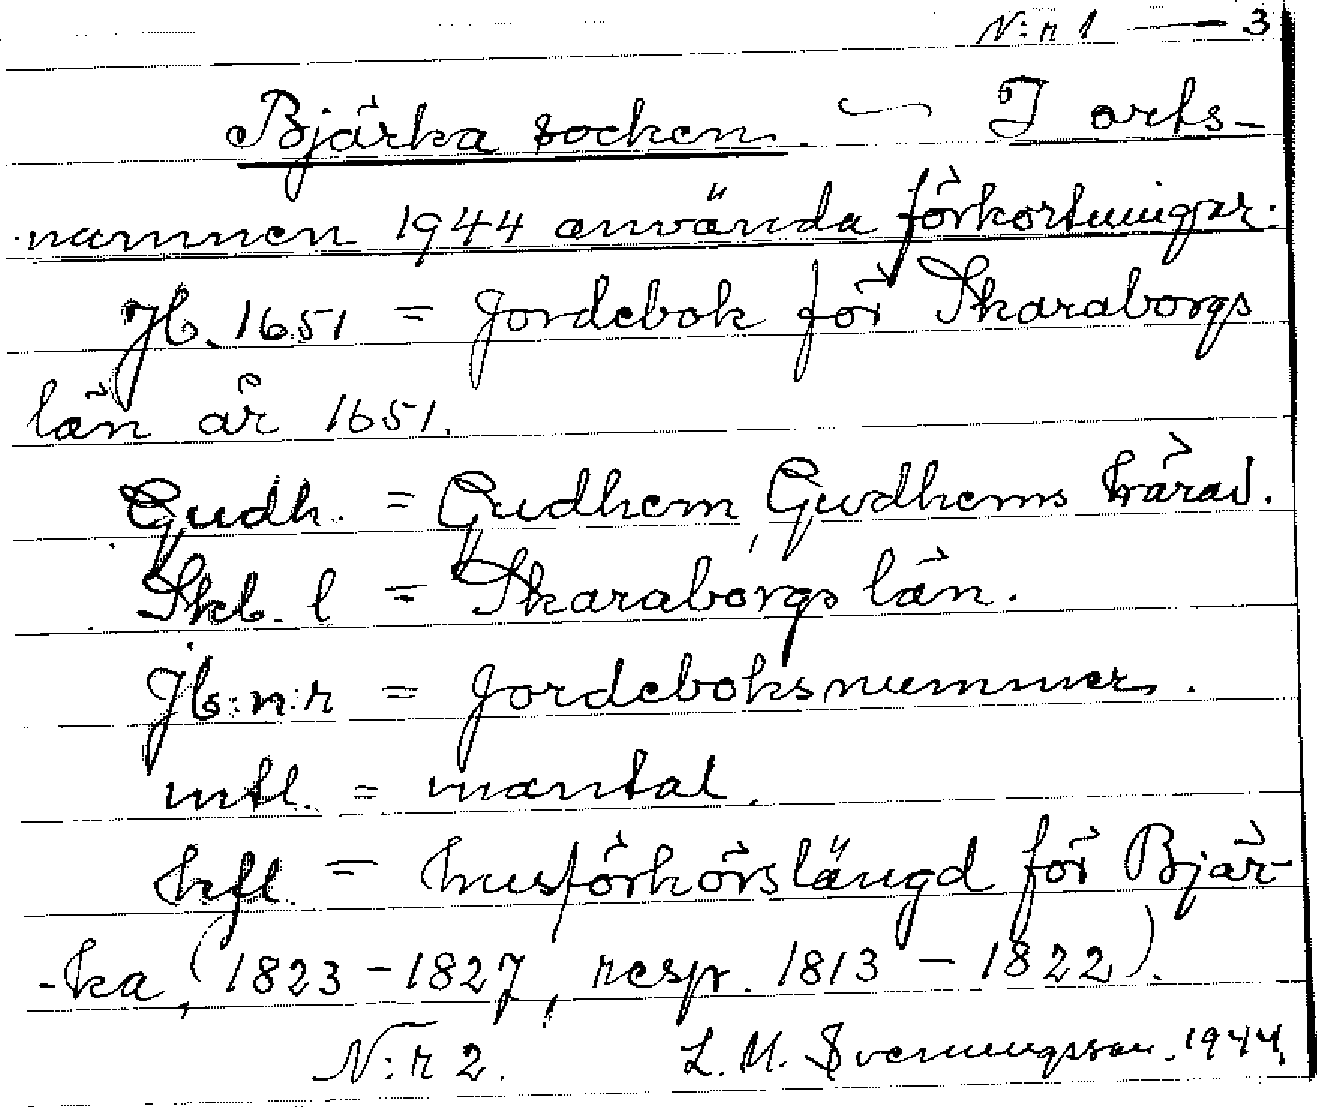 N:r 1 — 3
Bjärka socken. — I orts-
namnen 1944 använda förkortningar:
Jb. 1651 = Jordebok för Skaraborgs
län år 1651.
Gudh. = Gudhem, Gudhems härad.
Skb. l = Skaraborgs län.
Jb:n:r = Jordeboksnummer.
mtl. = mantal.
hfl. = husförhörslängd för Bjär-
-ka, (1823-1827, resp. 1813 - 1822).
N:r 2. L. M. Svenungsson. 1944.